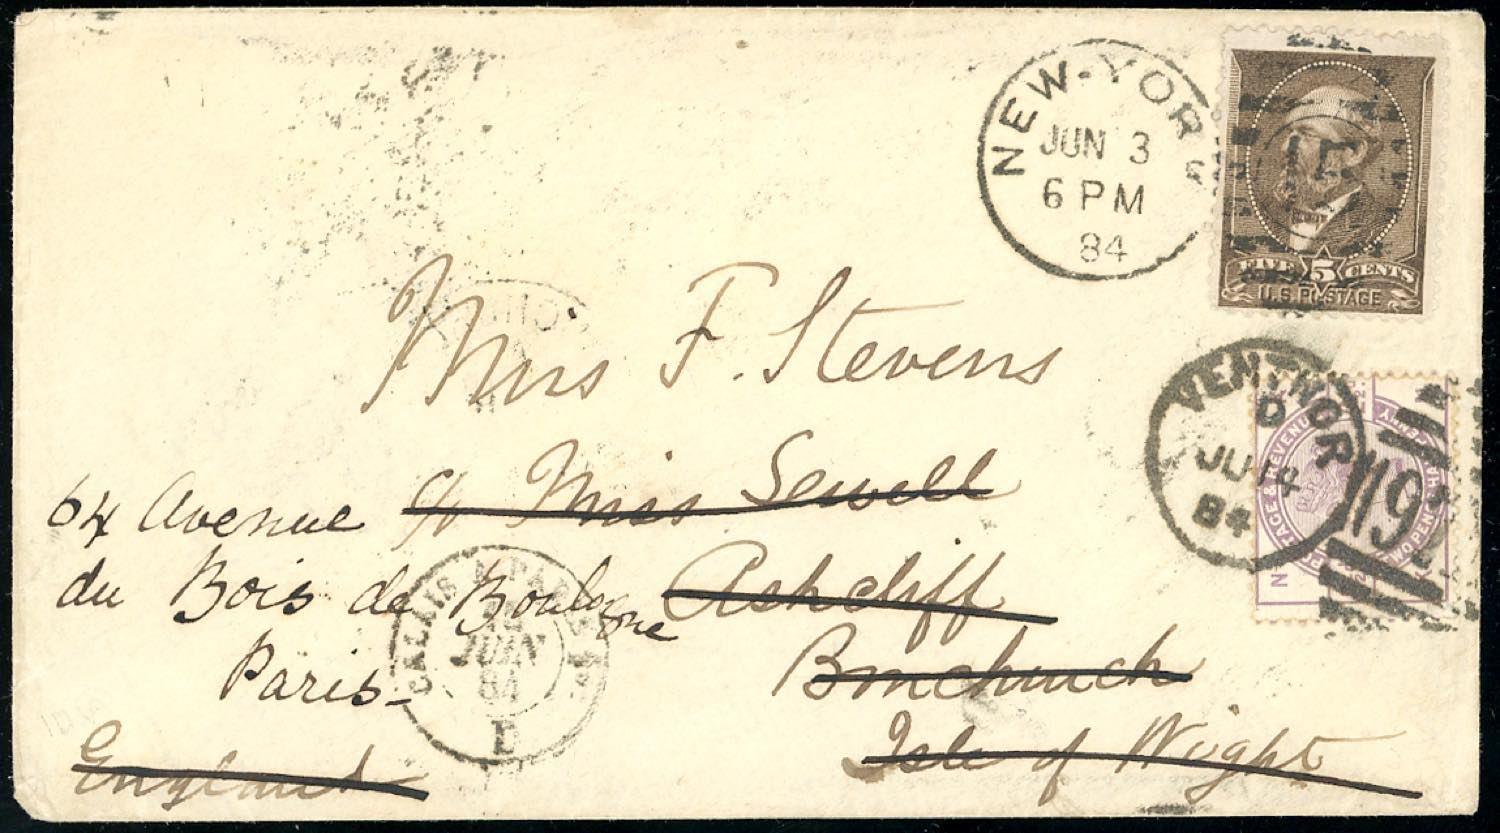 NEW-YORK
JUN 3
6 PM
84
15
FIVE 5 CENTS
U.S. POSTAGE
VENTNOR
D
JU 14
84
POSTAGE & REVENUE
N
Mrs F. Stevens
c/o Miss Sewell
Ashcliff
Bonchurch
Isle of Wight
England
64 Avenue
du Bois de Boulogne
Paris
CALAIS A PARIS
JUIN
84